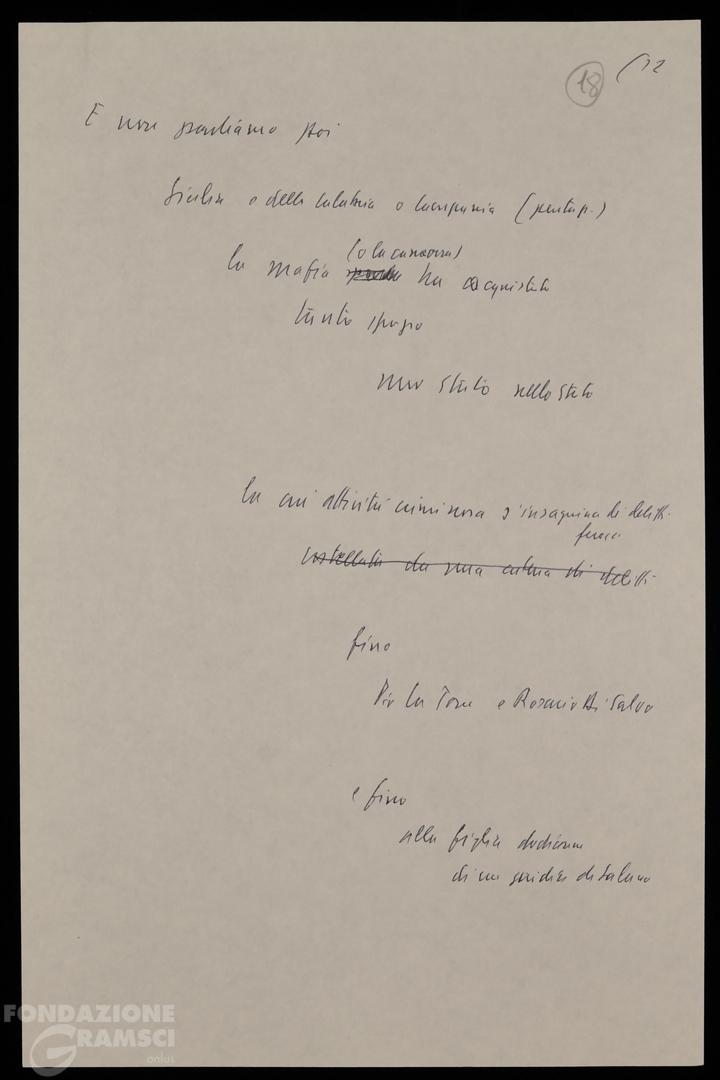 18 (12
E non parliamo poi
Sicilia e della Calabria e Campania (
(o la camorra)
la mafia ha acquistato
tanto spazio
uno Stato nello Stato
la cui attività criminosa s'insanguina di delitti
feroci
costellata da una catena di delitti
fino
Pio La Torre e Rosario Di Salvo
e fino
alla figlia dodicenne
di un giudice di Salerno
FONDAZIONE
GRAMSCI
onlus